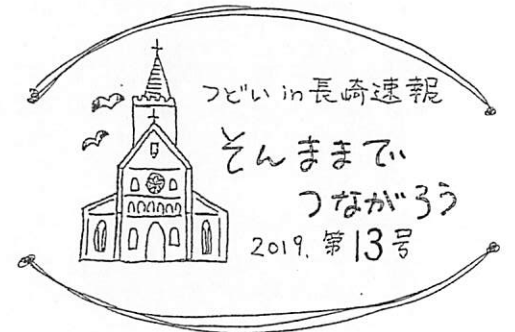 つどい in 長崎速報
そんままで
つながろう
2019. 第13号